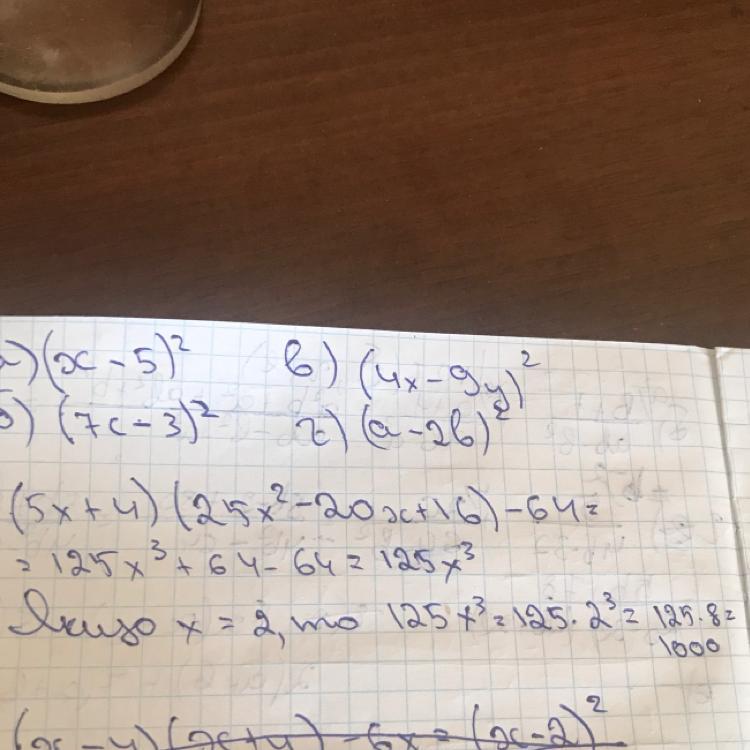 а) (x - 5)² в) (4x - 9y)²
б) (7c - 3)² г) (a - 2b)²
(5x + 4) (25x² - 20x + 16) - 64 =
= 125x³ + 64 - 64 = 125x³
Якщо x = 2, то 125x³ = 125 · 2³ = 125 · 8 =
1000
(x - 4)(x + 4) - 6x = (x - 2)²